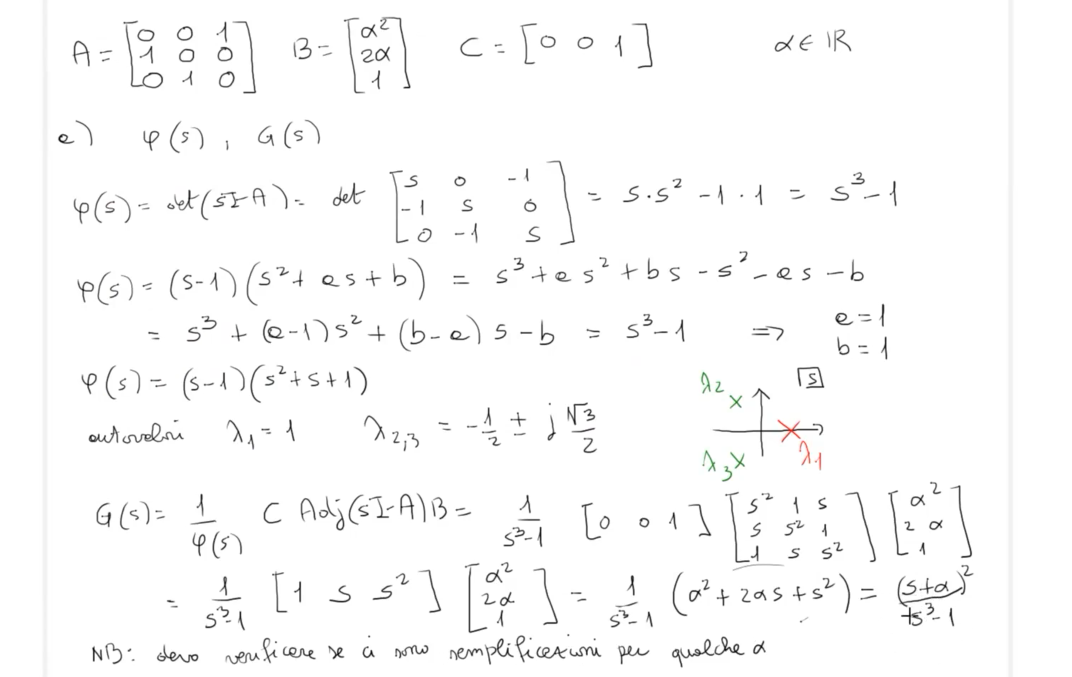 A = [0 0 1; 1 0 0; 0 1 0] B = [α²; 2α; 1] C = [0 0 1] α ∈ ℝ
a) φ(s), G(s)
φ(s) = det(sI-A) = det [s 0 -1; -1 s 0; 0 -1 s] = s·s² - 1·1 = s³-1
φ(s) = (s-1)(s² + as + b) = s³ + as² + bs - s² - as - b
= s³ + (a-1)s² + (b-a)s - b = s³-1 ⇒ a=1 b=1
φ(s) = (s-1)(s²+s+1)
autovalori λ₁ = 1 λ₂,₃ = -1/2 ± j √3/2
λ₂ s
λ₃ λ₁
G(s) = 1/φ(s) C Adj(sI-A)B = 1/(s³-1) [0 0 1] [s² 1 s; s s² 1; 1 s s²] [α²; 2α; 1]
= 1/(s³-1) [1 s s²] [α²; 2α; 1] = 1/(s³-1) (α² + 2αs + s²) = (s+α)²/(s³-1)
NB: devo verificare se ci sono semplificazioni per qualche α